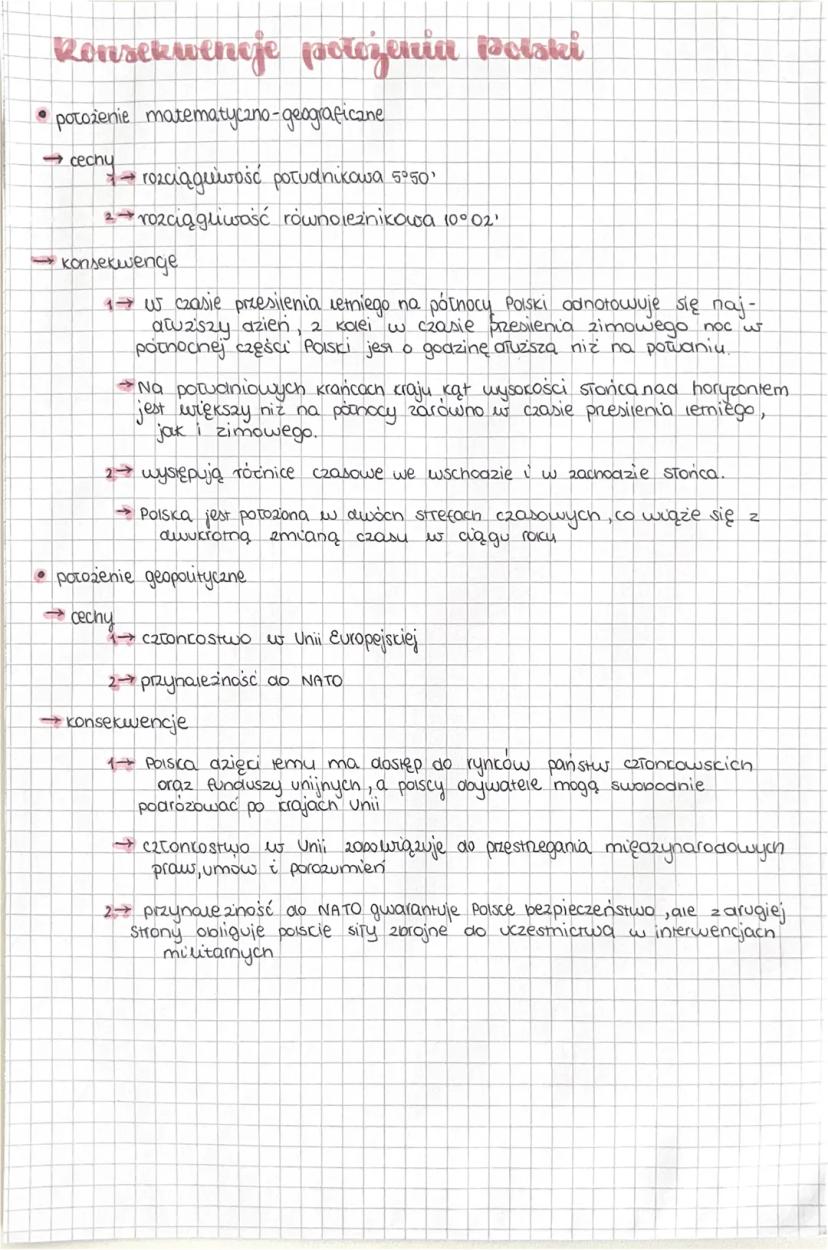 Konsekwencje położenia Polski
• położenie matematyczno-geograficzne
→ cechy
1→ rozciągliwość południkowa 5°50'
2→ rozciągliwość równoleżnikowa 10°02'
→ konsekwencje
1→ W czasie przesilenia letniego na północy Polski odnotowuje się naj-
dłuższy dzień, z kolei w czasie przesilenia zimowego noc w
północnej części Polski jest o godzinę dłuższa niż na południu.
→ Na południowych krańcach kraju kąt wysokości słońca nad horyzontem
jest większy niż na północy zarówno w czasie przesilenia letniego,
jak i zimowego.
2→ występują różnice czasowe we wschodzie i w zachodzie słońca.
→ Polska jest położona w dwóch strefach czasowych, co wiąże się z
dwukrotną zmianą czasu w ciągu roku
• położenie geopolityczne
→ cechy
1→ członkostwo w Unii Europejskiej
2→ przynależność do NATO
→ konsekwencje
1→ Polska dzięki temu ma dostęp do rynków państw członkowskich
oraz funduszy unijnych, a polscy obywatele mogą swobodnie
podróżować po krajach Unii
→ członkostwo w Unii zobowiązuje do przestrzegania międzynarodowych
praw, umów i porozumień
2→ przynależność do NATO gwarantuje Polsce bezpieczeństwo, ale z drugiej
strony obliguje polskie siły zbrojne do uczestnictwa w interwencjach
militarnych